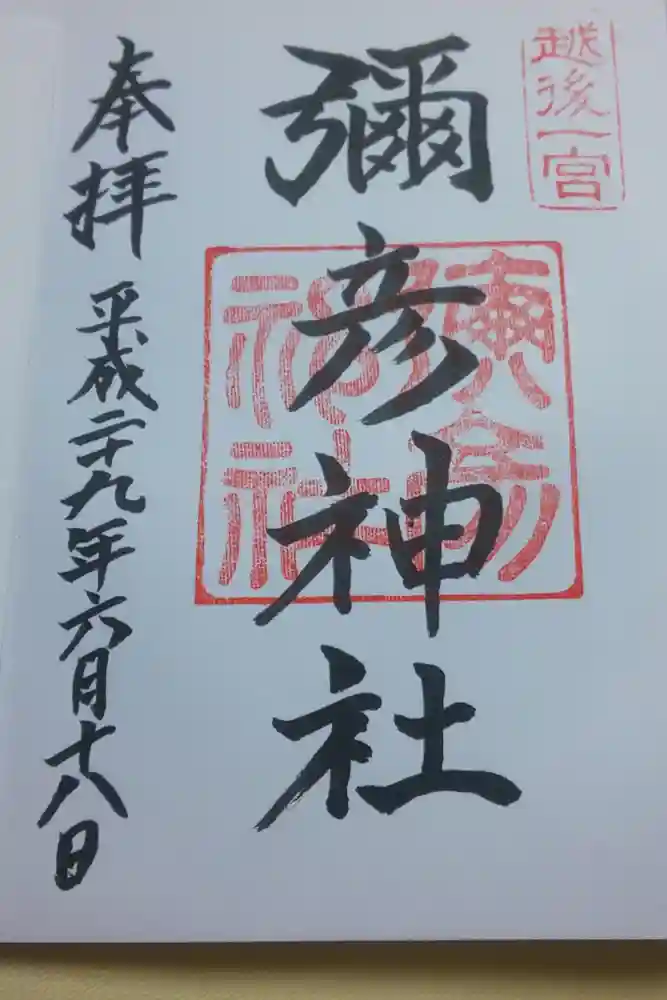 越後一宮
彌彦神社
奉拝
平成二十九年六月十八日